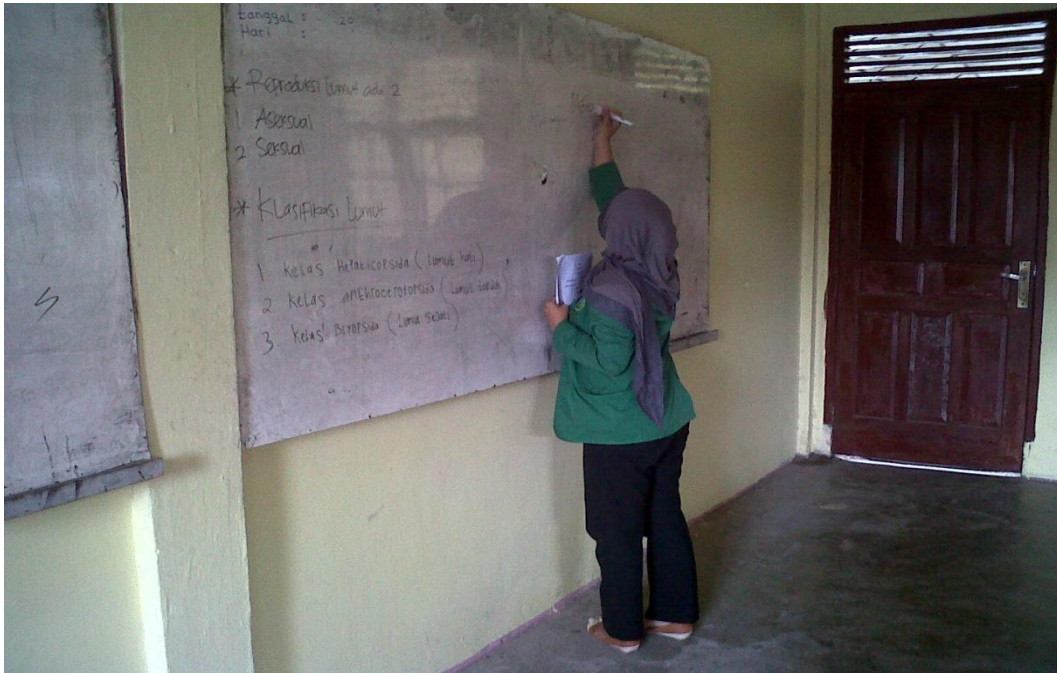 Tanggal : - -20
Hari :
* Reproduksi lumut ada 2
1 Aseksual
2 Seksual
* Klasifikasi lumut
1 Kelas Hepaticopsida (lumut hati)
2 Kelas (lumut tanduk)
3 Kelas Briopsida (lumut sejati)